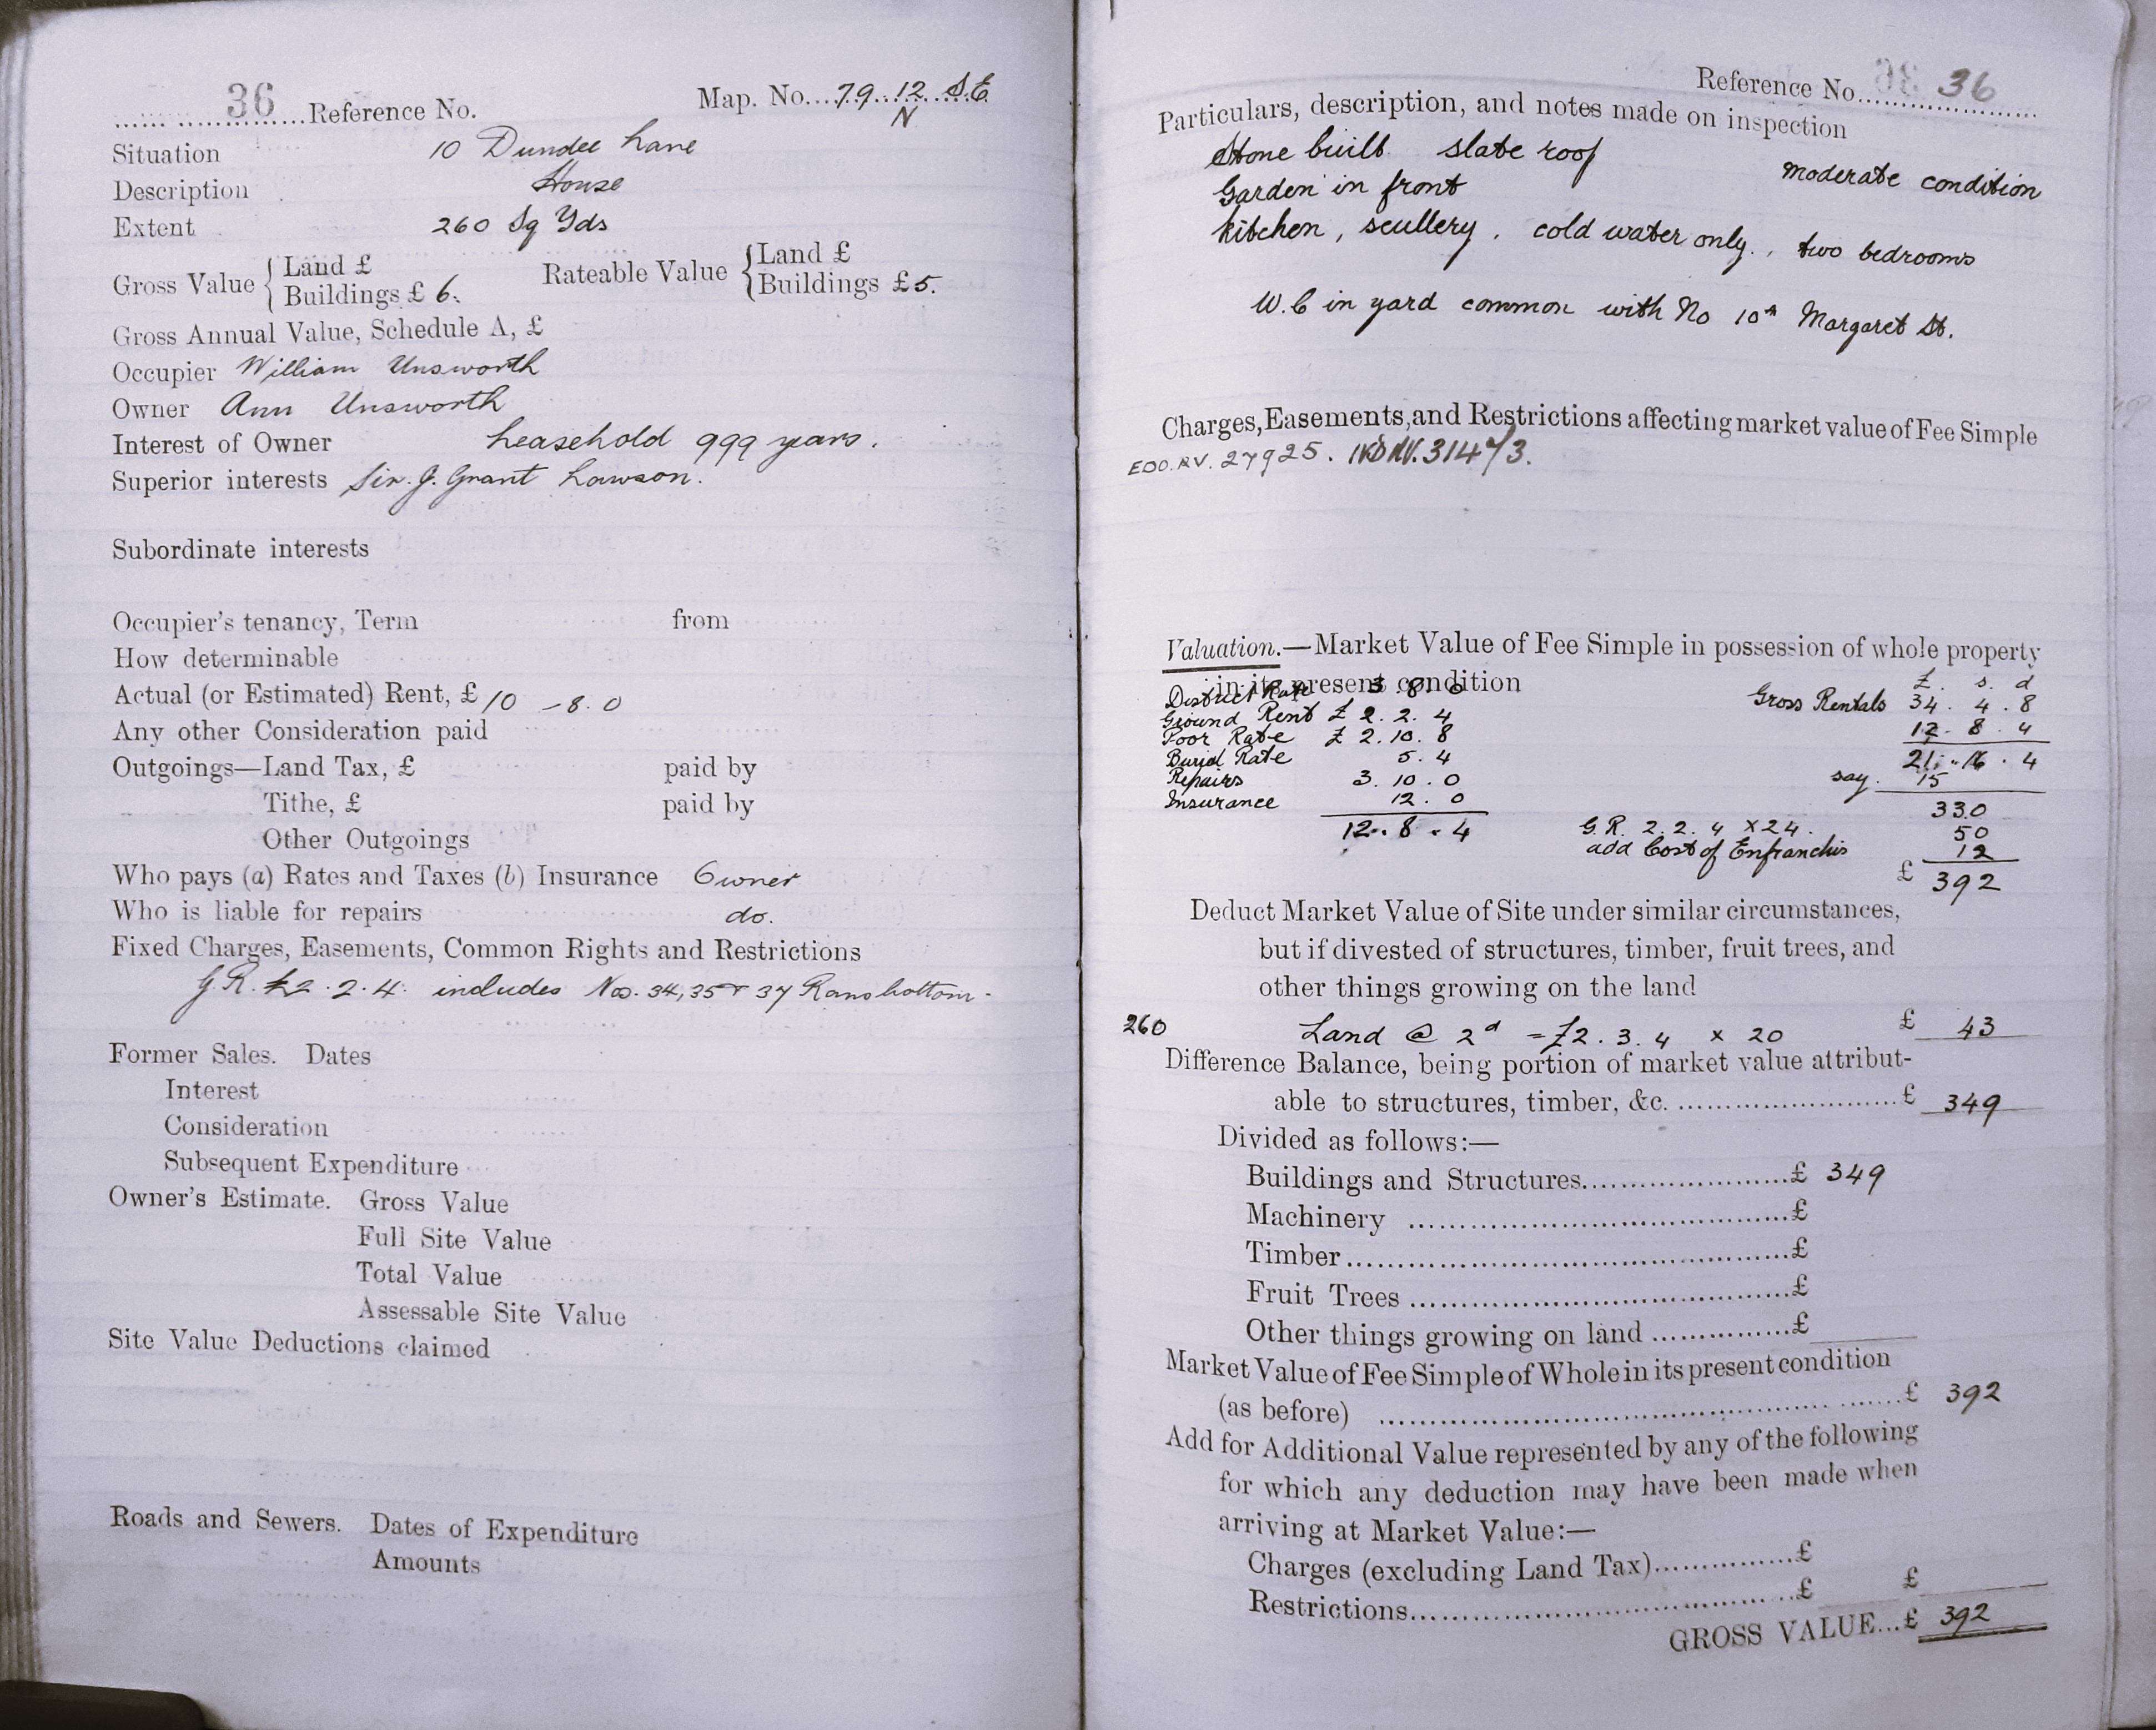 36 Reference No. Map. No. 79. 12 S.E
N
Situation 10 Dundee Lane
Description House
Extent 260 Sq Yds
Gross Value { Land £
Buildings £ 6. Rateable Value { Land £
Buildings £ 5.
Gross Annual Value, Schedule A, £
Occupier William Unsworth
Owner Ann Unsworth
Interest of Owner Leasehold 999 years.
Superior interests Sir. J. Grant Lawson.
Subordinate interests
Occupier's tenancy, Term from
How determinable
Actual (or Estimated) Rent, £ 10 - 8. 0
Any other Consideration paid
Outgoings—Land Tax, £ paid by
Tithe, £ paid by
Other Outgoings
Who pays (a) Rates and Taxes (b) Insurance Owner
Who is liable for repairs do.
Fixed Charges, Easements, Common Rights and Restrictions
G.R. £2. 2. 4. includes Nos. 34, 35 & 37 Ramsbottom.
Former Sales. Dates
Interest
Consideration
Subsequent Expenditure
Owner's Estimate. Gross Value
Full Site Value
Total Value
Assessable Site Value
Site Value Deductions claimed
Roads and Sewers. Dates of Expenditure
Amounts
Reference No. 36
Particulars, description, and notes made on inspection
Stone built slate roof moderate condition
Garden in front
kitchen, scullery, cold water only, two bedrooms
W.C in yard common with No 10A Margaret St.
Charges, Easements, and Restrictions affecting market value of Fee Simple
EDO. RV. 27925.
Valuation.—Market Value of Fee Simple in possession of whole property
in its present condition
District Rate 3. 8. 0
Ground Rent £ 2. 2. 4
Poor Rate £ 2. 10. 8
Burial Rate 5. 4
Repairs 3. 10. 0
Insurance 12. 0
12. 8. 4
£. s. d
Gross Rentals 34. 4. 8
12. 8. 4
21. 16. 4
say. 15
330
G.R. 2. 2. 4 x 24. 50
add Cost of Enfranchis 12
£ 392
Deduct Market Value of Site under similar circumstances,
but if divested of structures, timber, fruit trees, and
other things growing on the land
260 Land @ 2d = £2. 3. 4 x 20 £ 43
Difference Balance, being portion of market value attribut-
able to structures, timber, &c. £ 349
Divided as follows:—
Buildings and Structures £ 349
Machinery £
Timber £
Fruit Trees £
Other things growing on land £
Market Value of Fee Simple of Whole in its present condition
(as before) £ 392
Add for Additional Value represented by any of the following
for which any deduction may have been made when
arriving at Market Value:—
Charges (excluding Land Tax) £
Restrictions £ £
GROSS VALUE... £ 392